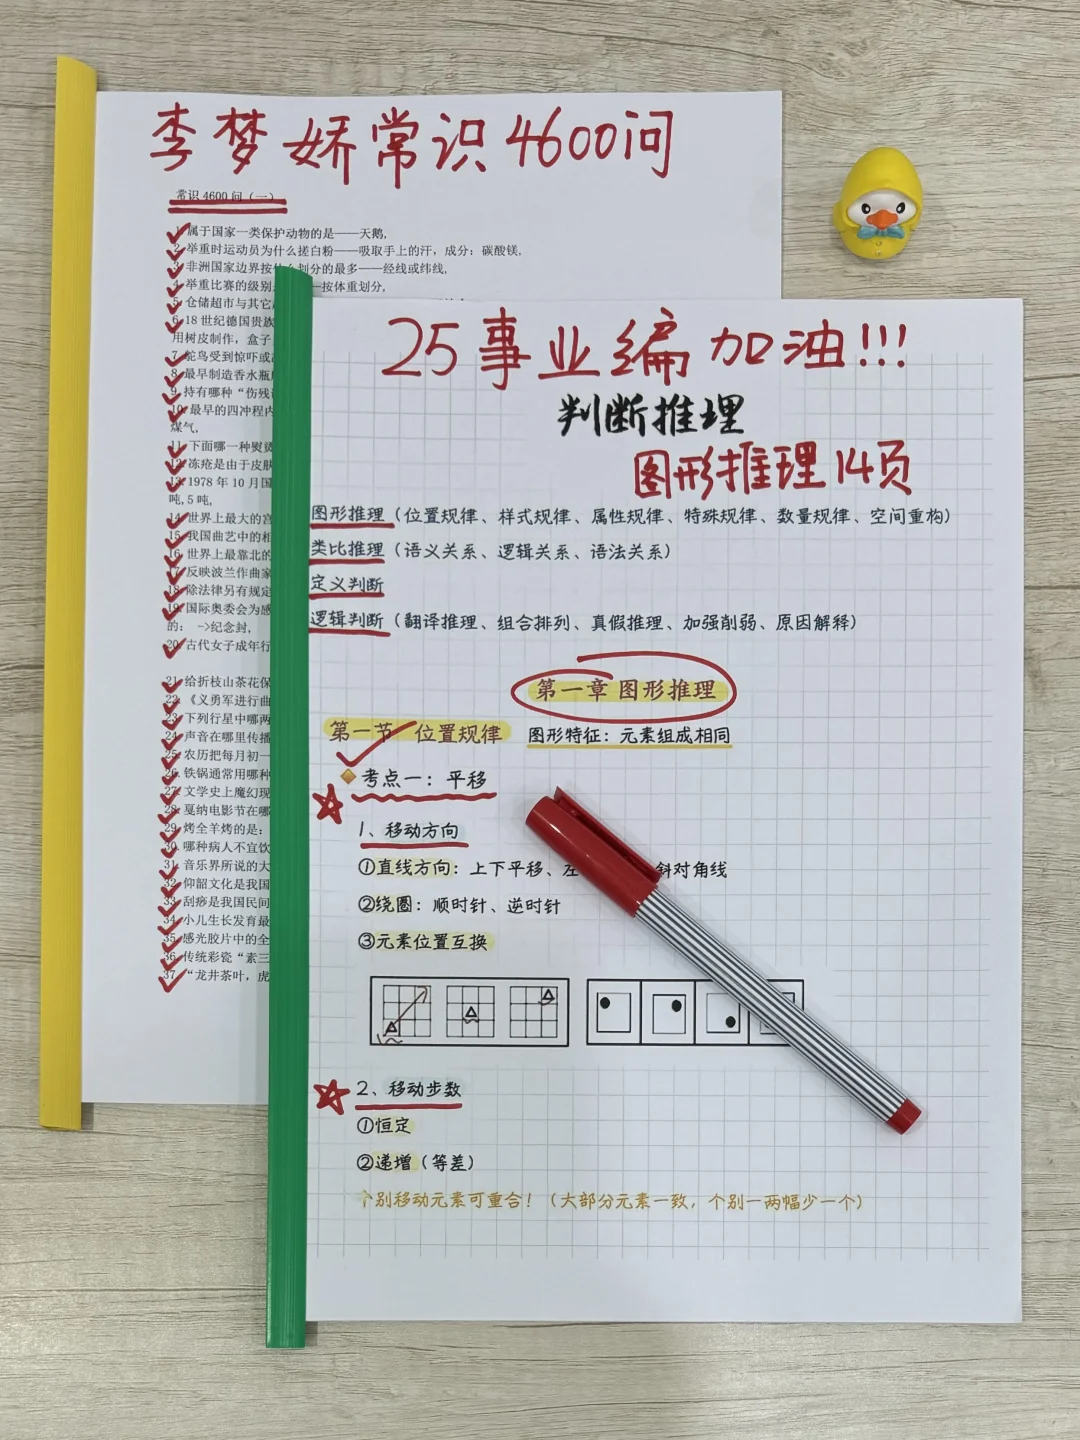 李梦娇常识4600问
常识 4600 问（一）
1. 属于国家一类保护动物的是——天鹅,
2. 举重时运动员为什么搓白粉——吸取手上的汗，成分：碳酸镁,
3. 非洲国家边界按什么划分的最多——经线或纬线,
4. 举重比赛的级别 按体重划分,
5. 仓储超市与其它
6. 18 世纪德国贵族
用树皮制作，盒子
7. 鸵鸟受到惊吓或
8. 最早制造香水瓶
9. 持有哪种“伤残
10. 最早的四冲程内
煤气,
11. 下面哪一种熨烫
12. 冻疮是由于皮肤
13. 1978 年 10 月国
吨, 5 吨,
14. 世界上最大的宫
15. 我国曲艺中的相
16. 世界上最靠北的
17. 反映波兰作曲家
18. 除法律另有规定
19. 国际奥委会为感
的： ->纪念封,
20. 古代女子成年行
21. 给折枝山茶花保
22. 《义勇军进行曲
23. 下列行星中哪两
24. 声音在哪里传播
25. 农历把每月初一
26. 铁锅通常用哪种
27. 文学史上魔幻现
28. 戛纳电影节在哪
29. 烤全羊烤的是：
30. 哪种病人不宜饮
31. 音乐界所说的大
32. 仰韶文化是我国
33. 刮痧是我国民间
34. 小儿生长发育最
35. 感光胶片中的全
36. 传统彩瓷“素三
37. “龙井茶叶，虎
25事业编加油!!!
判断推理
图形推理14页
图形推理（位置规律、样式规律、属性规律、特殊规律、数量规律、空间重构）
类比推理（语义关系、逻辑关系、语法关系）
定义判断
逻辑判断（翻译推理、组合排列、真假推理、加强削弱、原因解释）
第一章 图形推理
第一节 位置规律 图形特征：元素组成相同
考点一：平移
1、移动方向
①直线方向：上下平移、左 斜对角线
②绕圈：顺时针、逆时针
③元素位置互换
2、移动步数
①恒定
②递增（等差）
个别移动元素可重合！（大部分元素一致，个别一两幅少一个）